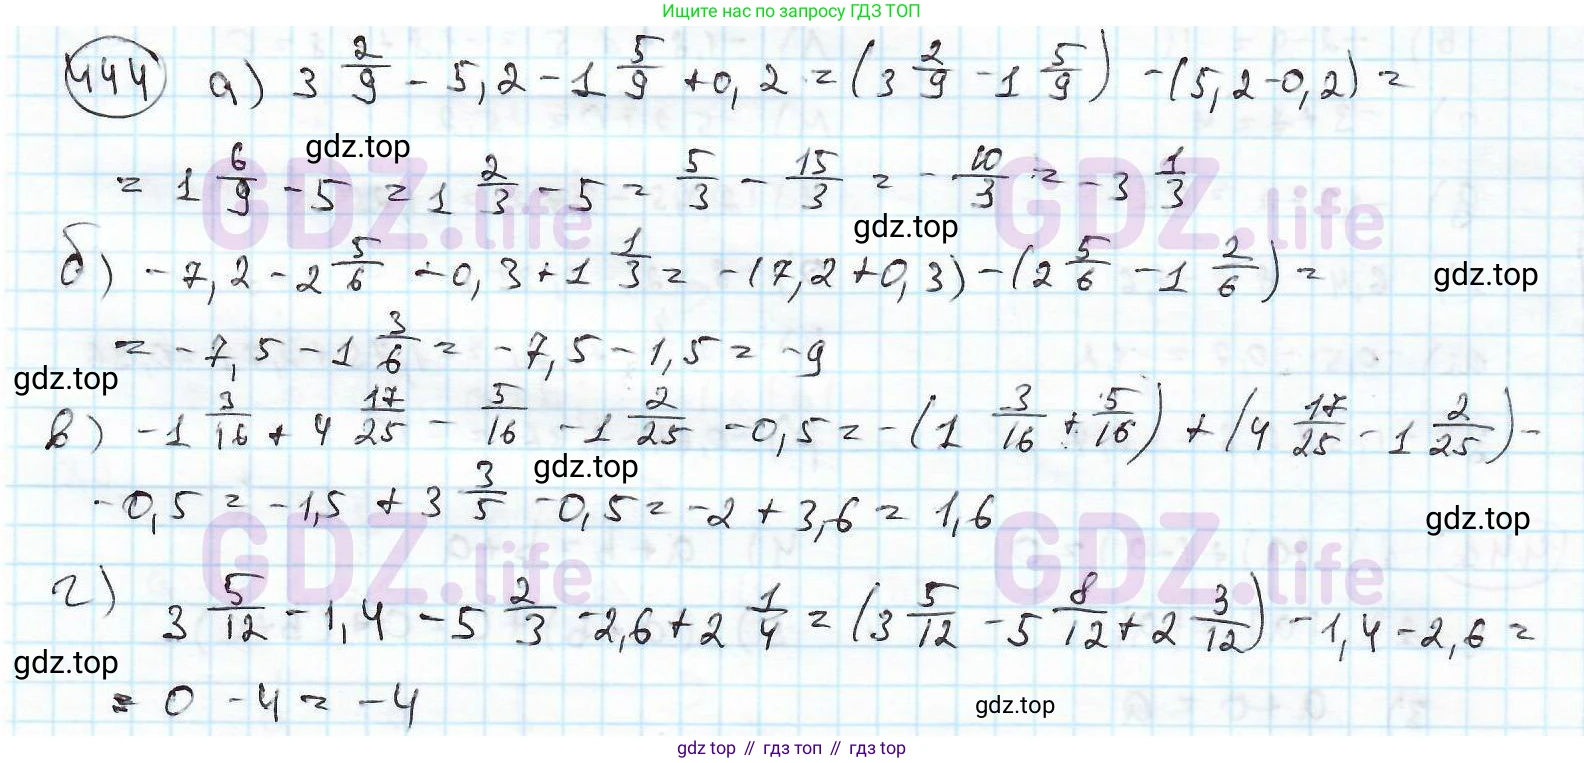 Ищите нас по запросу ГДЗ ТОП
444 а) 3 2/9 - 5,2 - 1 5/9 + 0,2 = (3 2/9 - 1 5/9) - (5,2 - 0,2) =
gdz.top
= 1 6/9 - 5 = 1 2/3 - 5 = 5/3 - 15/3 = - 10/3 = -3 1/3
GDZ.life GDZ.life
gdz.top
б) -7,2 - 2 5/6 - 0,3 + 1 1/3 = -(7,2 + 0,3) - (2 5/6 - 1 2/6) =
gdz.top
= -7,5 - 1 3/6 = -7,5 - 1,5 = -9
gdz.top
в) -1 3/16 + 4 17/25 - 5/16 - 1 2/25 - 0,5 = -(1 3/16 + 5/16) + (4 17/25 - 1 2/25) -
gdz.top
- 0,5 = -1,5 + 3 3/5 - 0,5 = -2 + 3,6 = 1,6
gdz.top
GDZ.life GDZ.life
г) 3 5/12 - 1,4 - 5 2/3 - 2,6 + 2 1/4 = (3 5/12 - 5 8/12 + 2 3/12) - 1,4 - 2,6 =
gdz.top
= 0 - 4 = -4
gdz.top
gdz top // гдз топ // gdz top